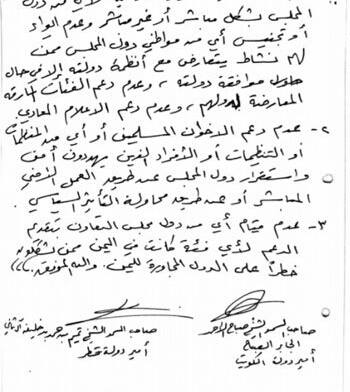 المجلس بشكل مباشر أو غير مباشر وعدم إيواء
أو تجنيس أي من مواطني دول المجلس ممن
لهم نشاط يتعارض مع أنظمة دولته إلا في حال
موافقة دولته، وعدم دعم الفئات المارقة
المعارضة لدولهم، وعدم دعم الاعلام المعادي.
٢- عدم دعم الاخوان المسلمين أو أي من المنظمات
أو التنظيمات أو الأفراد الذين يهددون أمن
واستقرار دول المجلس عن طريق العمل الأمني
المباشر أو عن طريق محاولة التأثير السياسي
٣- عدم قيام أي من دول مجلس التعاون بتقديم
الدعم لأي فئة كانت في اليمن ممن يشكلون
خطراً على الدول المجاورة لليمن. والله الموفق،،،
صاحب السمو الشيخ تميم بن حمد بن خليفة آل ثاني
أمير دولة قطر
صاحب السمو الشيخ صباح الأحمد
الجابر الصباح
أمير دولة الكويت